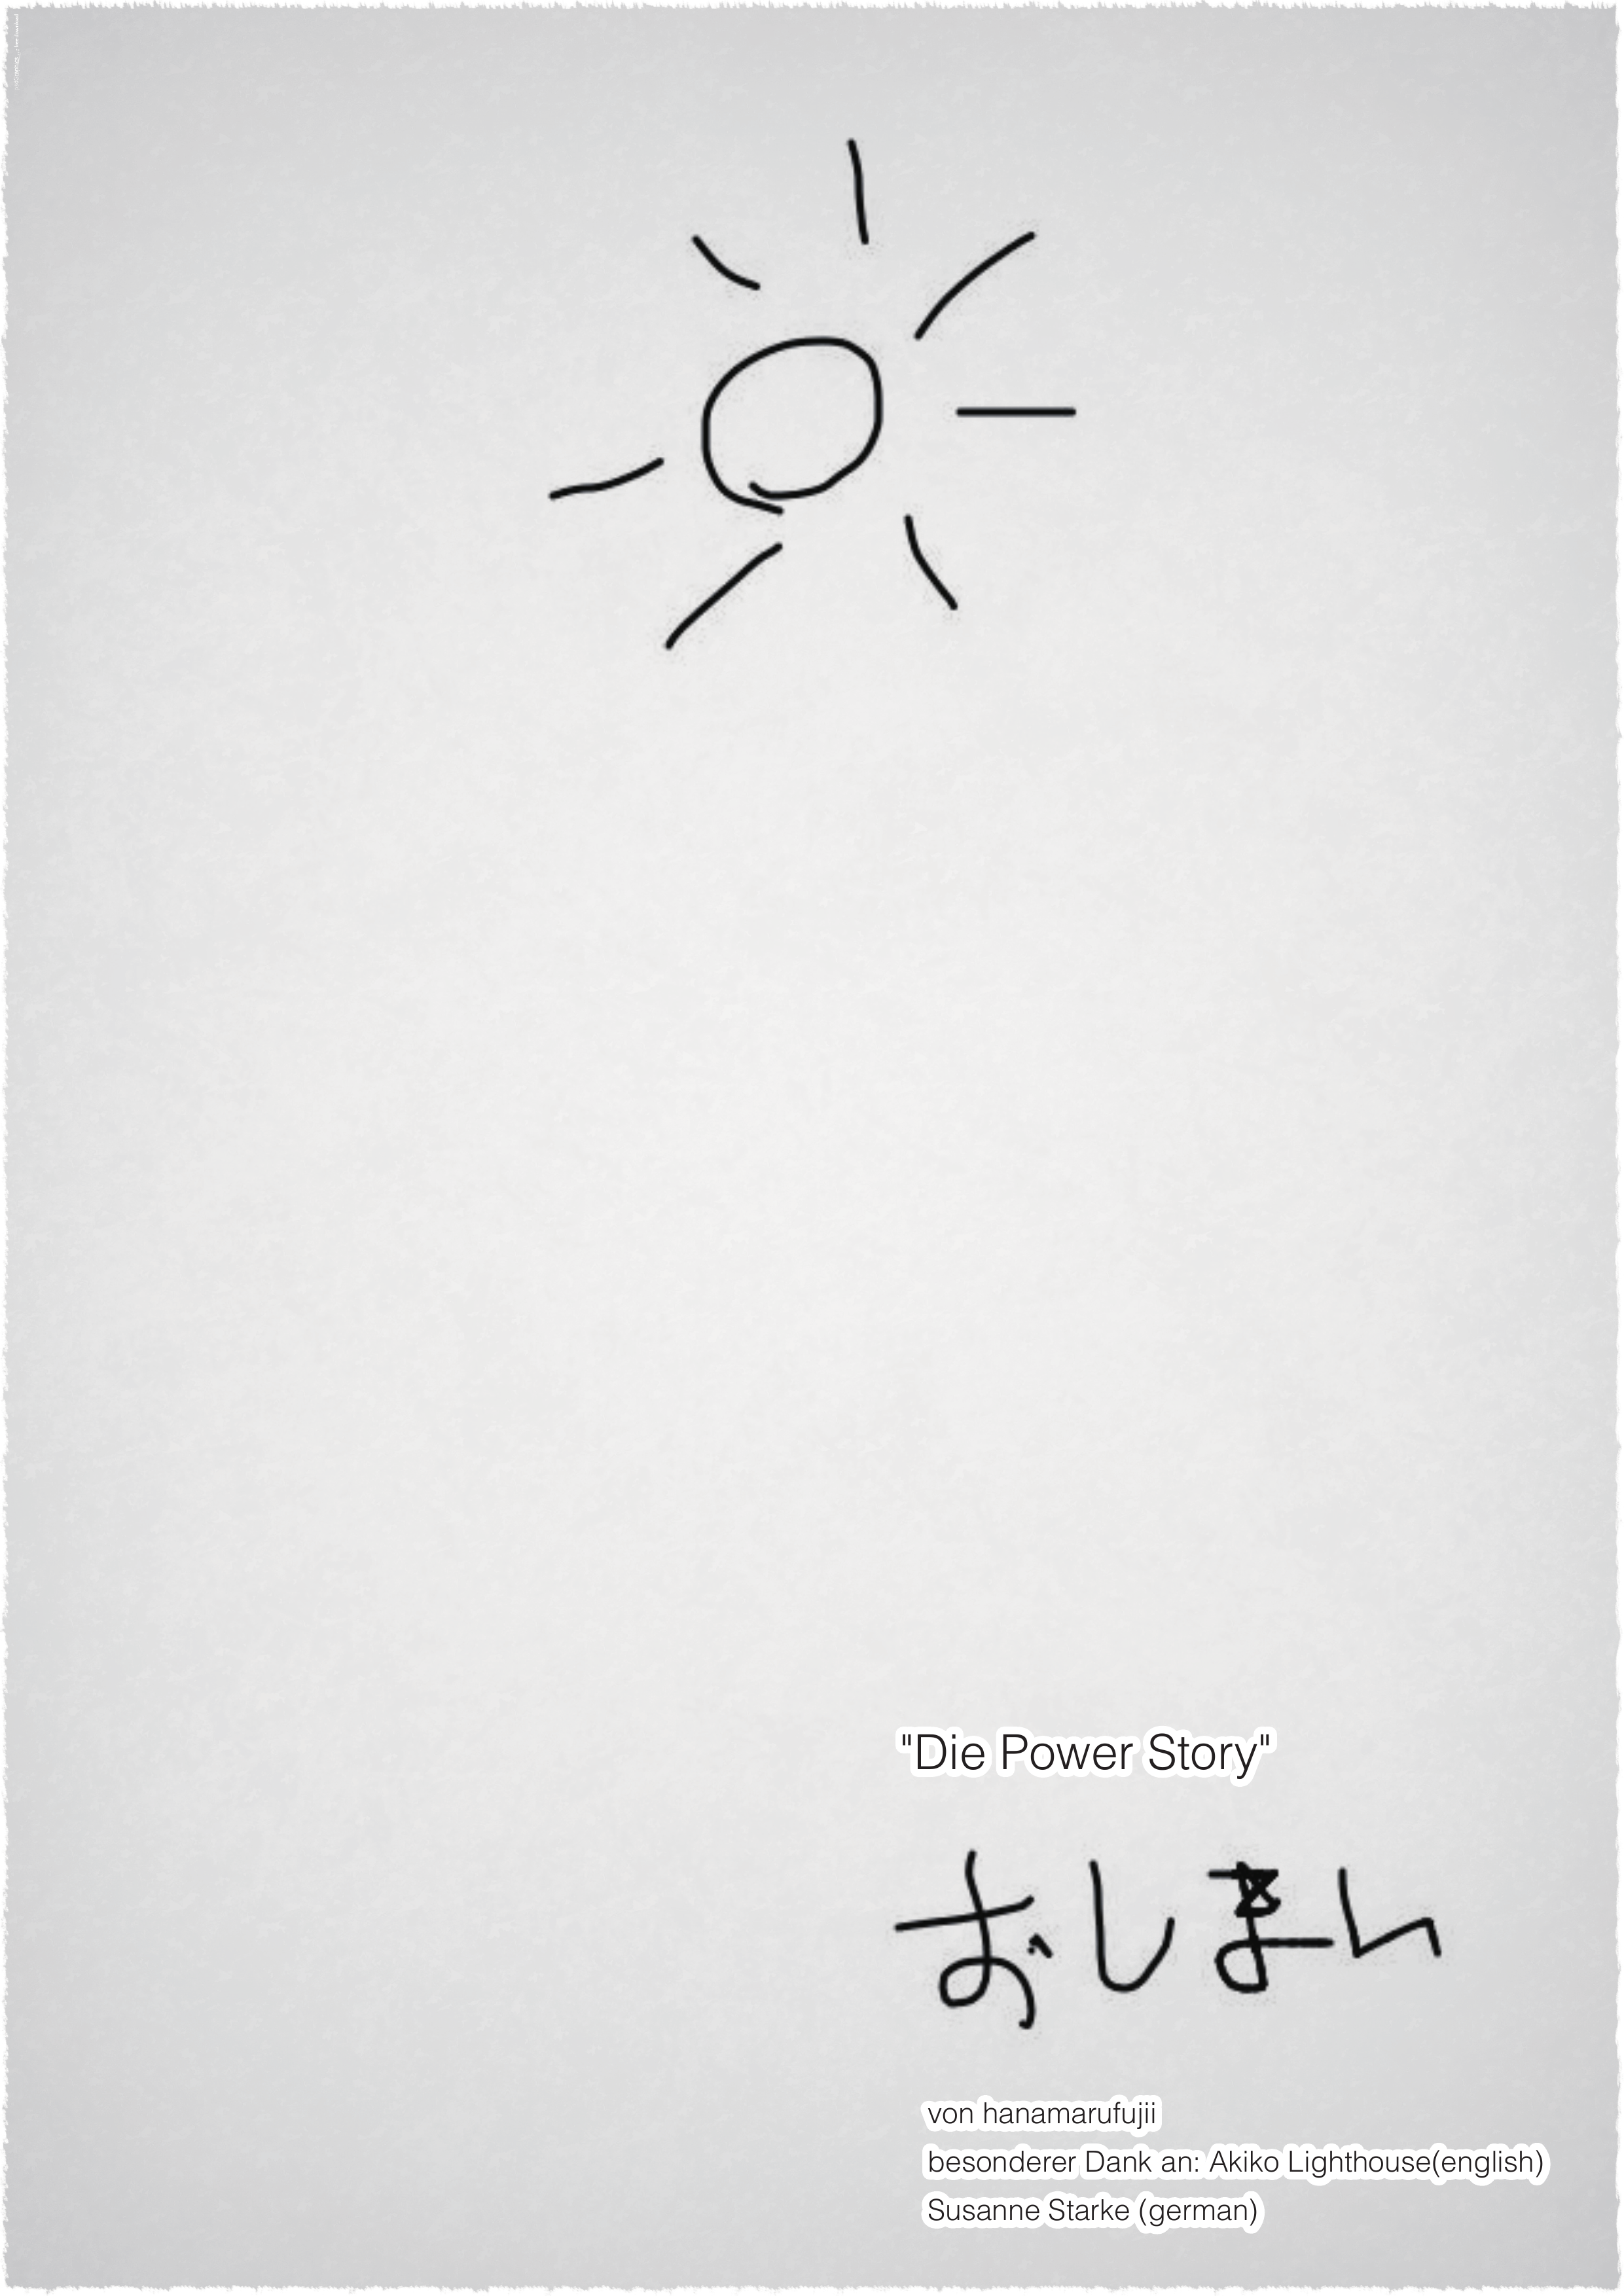 "Die Power Story"
おしまい
von hanamarufujii
besonderer Dank an: Akiko Lighthouse(english)
Susanne Starke (german)